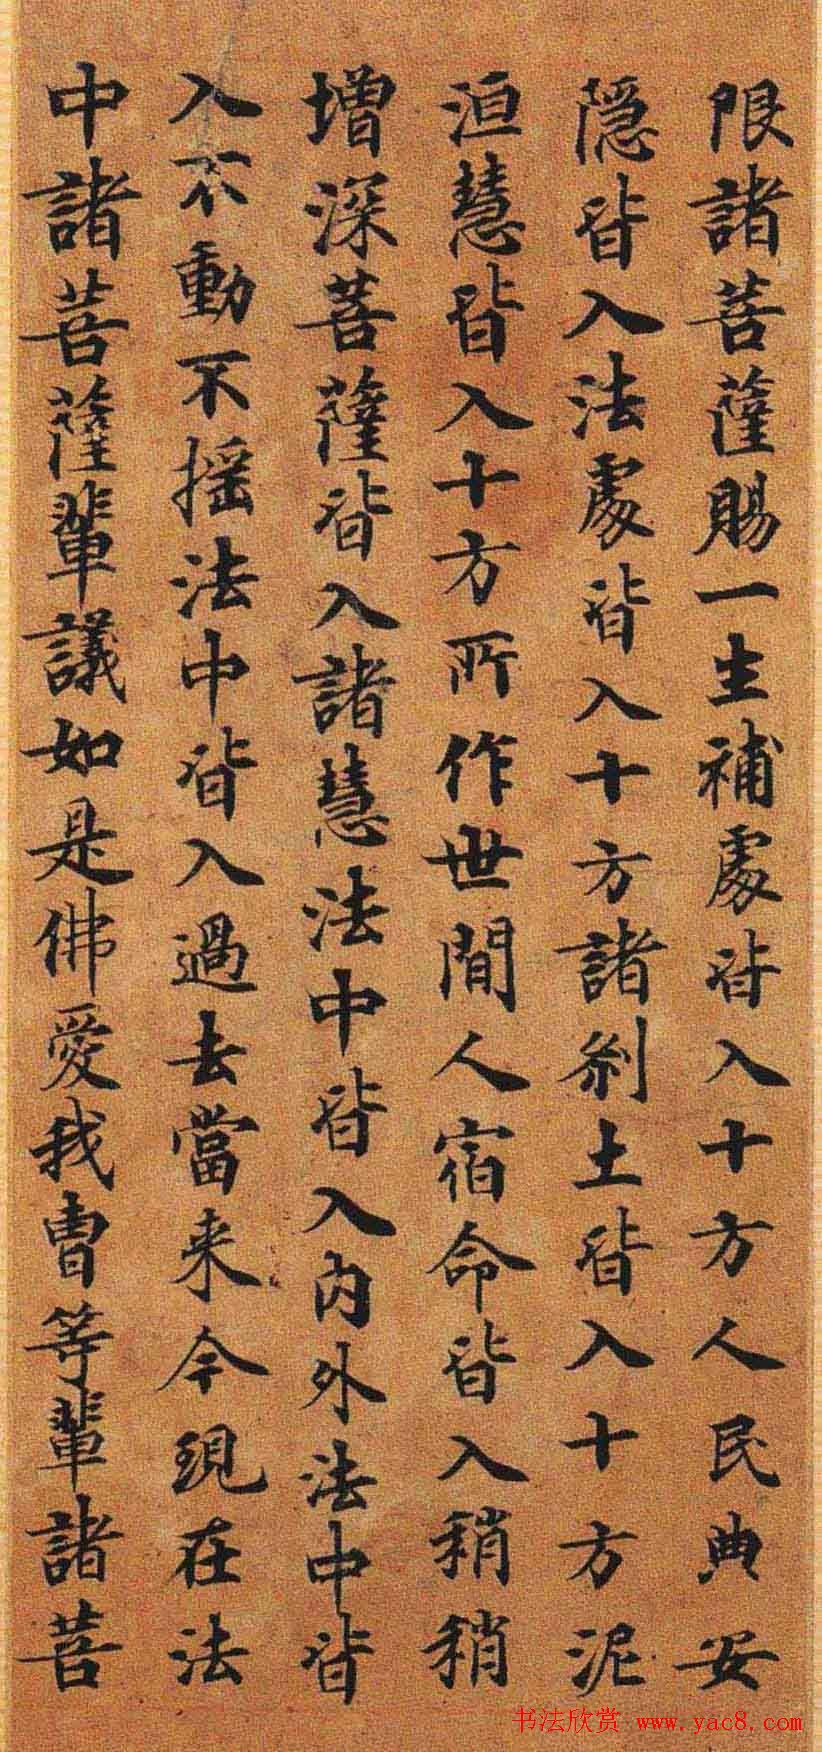 限諸菩薩賜一生補處皆入十方人民典安
隱皆入法處皆入十方諸剎土皆入十方泥
洹慧皆入十方所作世間人宿命皆入稍稍
增深菩薩皆入諸慧法中皆入內外法中皆
入不動不搖法中皆入過去當来今現在法
中諸菩薩輩議如是佛愛我曹等輩諸菩
书法欣赏 www.yac8.com